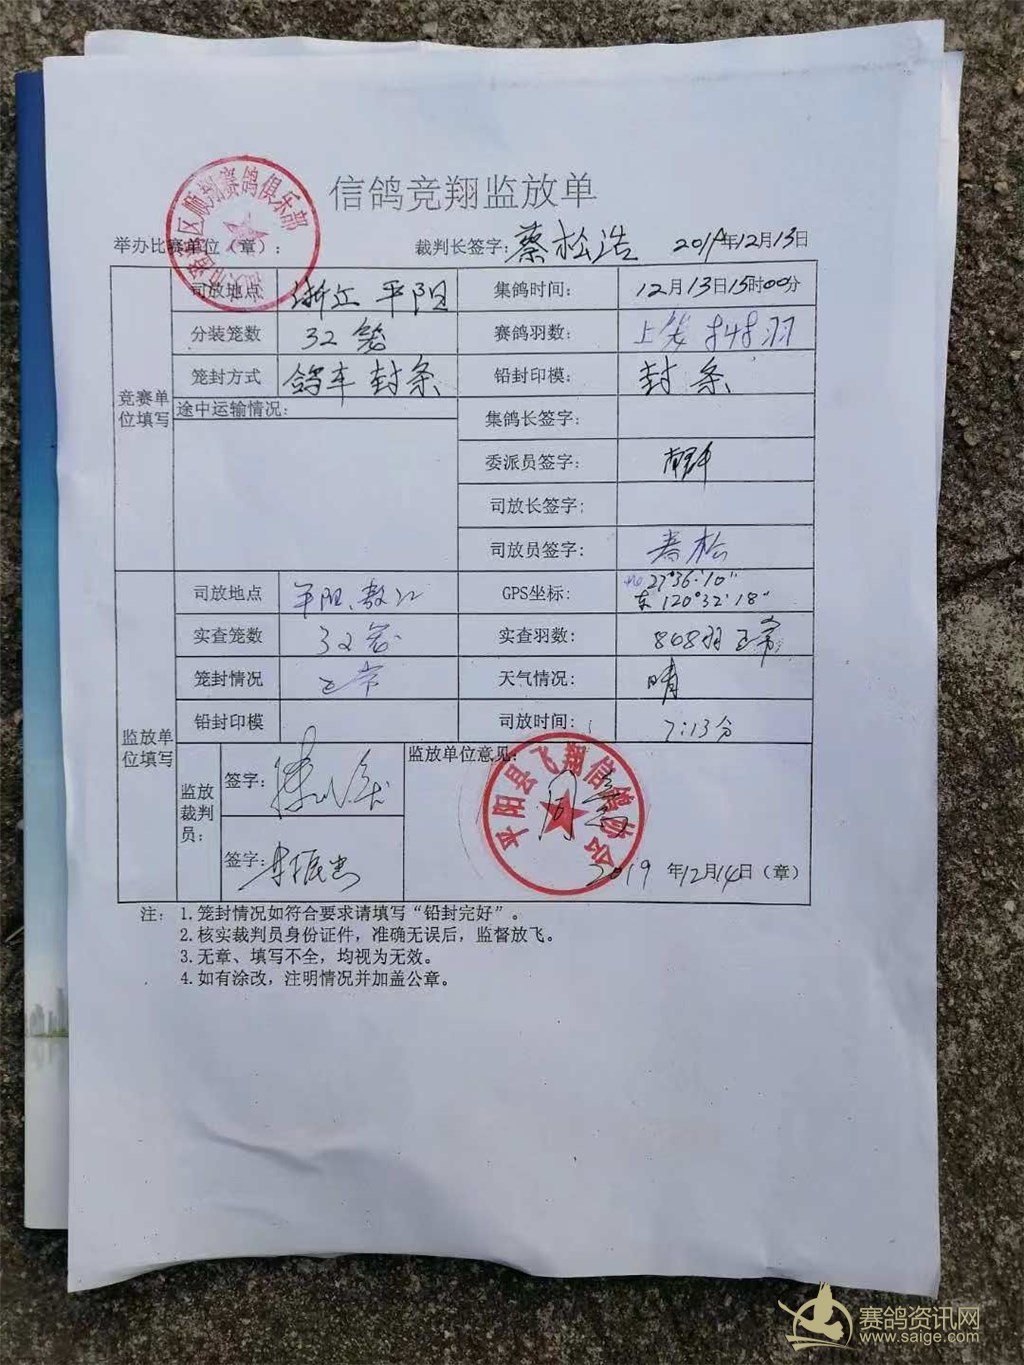 信鸽竞翔监放单
举办比赛单位（章）： 裁判长签字: 蔡松浩 2019年12月13日
顺翔赛鸽俱乐部
竞赛单位填写
司放地点 浙江 平阳 集鸽时间: 12月13日15时00分
分装笼数 32笼 赛鸽羽数: 上笼 羽
笼封方式 鸽车封条 铅封印模: 封条
途中运输情况: 集鸽长签字:
委派员签字:
司放长签字:
司放员签字: 春松
监放单位填写
司放地点 平阳、敖江 GPS坐标: 27°36'10"
东 120°32'18"
实查笼数 32笼 实查羽数: 808羽 正常
笼封情况 正常 天气情况: 晴
铅封印模 司放时间: 7:13分
监放裁判员: 签字: 监放单位意见:
平阳县飞翔信鸽协会
签字: 2019 年12月14日（章）
注： 1.笼封情况如符合要求请填写“铅封完好”。
2.核实裁判员身份证件，准确无误后，监督放飞。
3.无章、填写不全，均视为无效。
4.如有涂改，注明情况并加盖公章。
赛鸽资讯网
www.saige.com